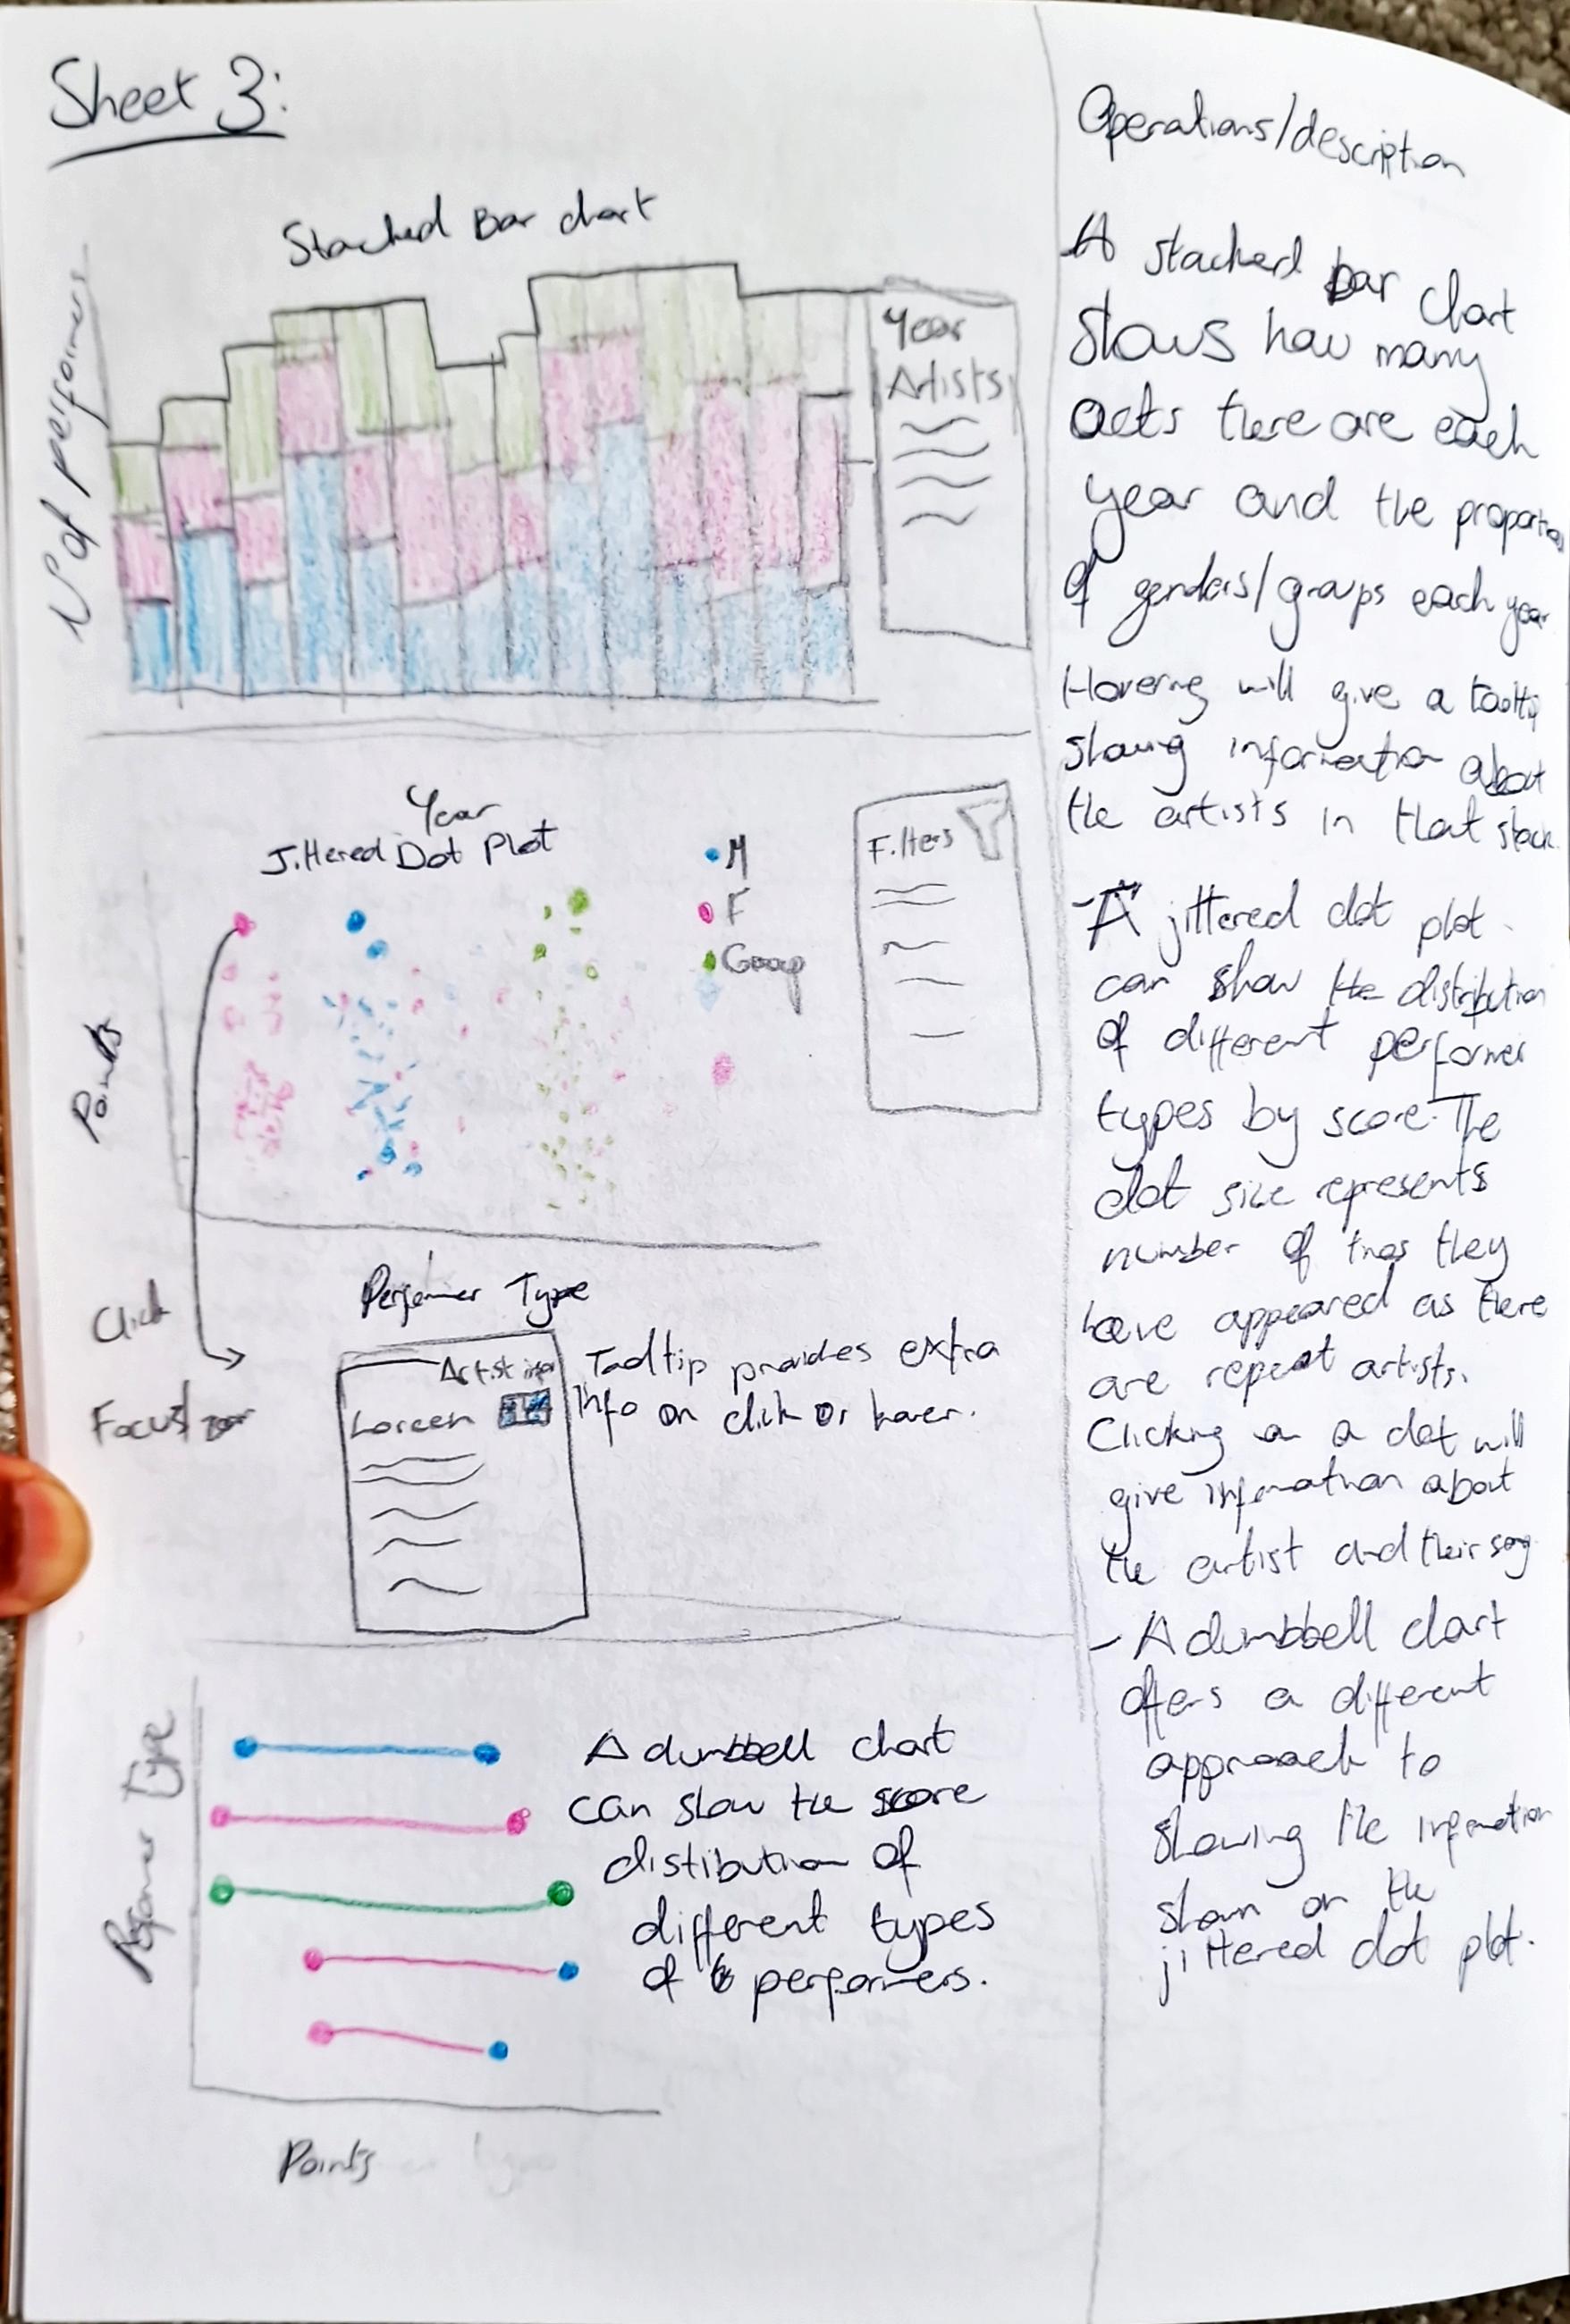 Sheet 3:
Stacked Bar chart
Nº of performers
Year
Artists
Year
Jittered Dot Plot
M
F
Group
Filters
Points
Performer Type
Click
Focus/zoom
Artist info
Loreen
Tooltip provides extra
info on click or hover.
Performer Type
Points
A dumbbell chart
can show the score
distibution of
different types
of performers.
Operations/description
A stacked bar chart
shows how many
acts there are each
year and the proportion
of genders/groups each year
Hovering will give a tooltip
showing information about
the artists in that stack.
- A jittered dot plot
can show the distribution
of different performer
types by score. The
dot size represents
number of times they
have appeared as there
are repeat artists.
Clicking on a dot will
give information about
the artist and their song
- A dumbbell chart
offers a different
approach to
showing the information
shown on the
jittered dot plot.